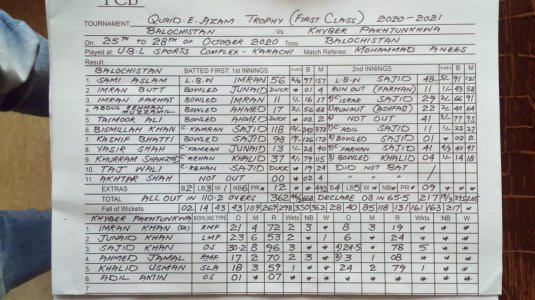 PCB
TOURNAMENT QUAID-E-AZAM TROPHY (FIRST CLASS) 2020-2021
BALOCHISTAN Vs KHYBER PAKHTUNKHWA
On. 25TH TO 28TH OF OCTOBER 2020 Toss: BALOCHISTAN
Played at: U.B.L SPORTS COMPLEX - KARACHI Match Referee: MOHAMMAD ANEES
Result:
BALOCHISTAN BATTED FIRST: 1ST INNINGS B M 2nd INNINGS B M
1 SAMI ASLAM L.B.W IMRAN 56 97 157 L.B.W SAJID 48 91 121
2 IMRAN BUTT BOWLED JUNAID DUCK 01 4 RUN OUT (FARHAN) 11 43 58
3 IMRAN FARHAT BOWLED IMRAN 11 16 17 SAJID 29 66 91
4 BOWLED AHMED 17 56 68 RUN OUT (ASHFAQ) 22 40 64
5 TAIMOOR ALI BOWLED AHMED 02 2 NOT OUT 41 77 95
6 BISMILLAH KHAN C KAMRAN SAJID 118 242 373 C ADIL SAJID 11 32 27
7 KASHIF BHATTI BOWLED SAJID 98 126 172 BOWLED SAJID 01 02 2
8 YASIR SHAH C KAMRAN JUNAID 13 28 40 C FARHAN SAJID 41 40 47
9 KHURRAM SHAHZAD C REHAN KHALID 37 79 115 BOWLED KHALID 04 14 18
10 TAJ WALI C REHAN SAJID DUCK 19 24 DID NOT BAT
11 AKHTAR SHAH NOT OUT 00 02 4
EXTRAS B2 LB3 W NB6 PR 12 B4 LB5 W NB PR 09
TOTAL ALL OUT IN 110.2 OVERS 362 668 DECLARE 08 IN 65.5 217 395 265
Fall of Wickets 02 14 43 43 109 269 298 350 362 28 40 85 118 131 161 163 217 W
KHYBER PAKHTUNKWA BOWLING TYPE O M R W NB W O M R W NB W
1 IMRAN KHAN RMF 21 4 72 2 3 8 3 19
2 JUNAID KHAN LMF 23 6 53 2 6 24
3 SAJID KHAN OS 30.2 3 96 3 24.5 78 5
4 AHMED JAMAL RMF 17 2 70 2 3 3 1 08
5 KHALID USMAN SLA 18 3 59 1 24 2 79 1
6 ADIL AMIN OS 01 07
7